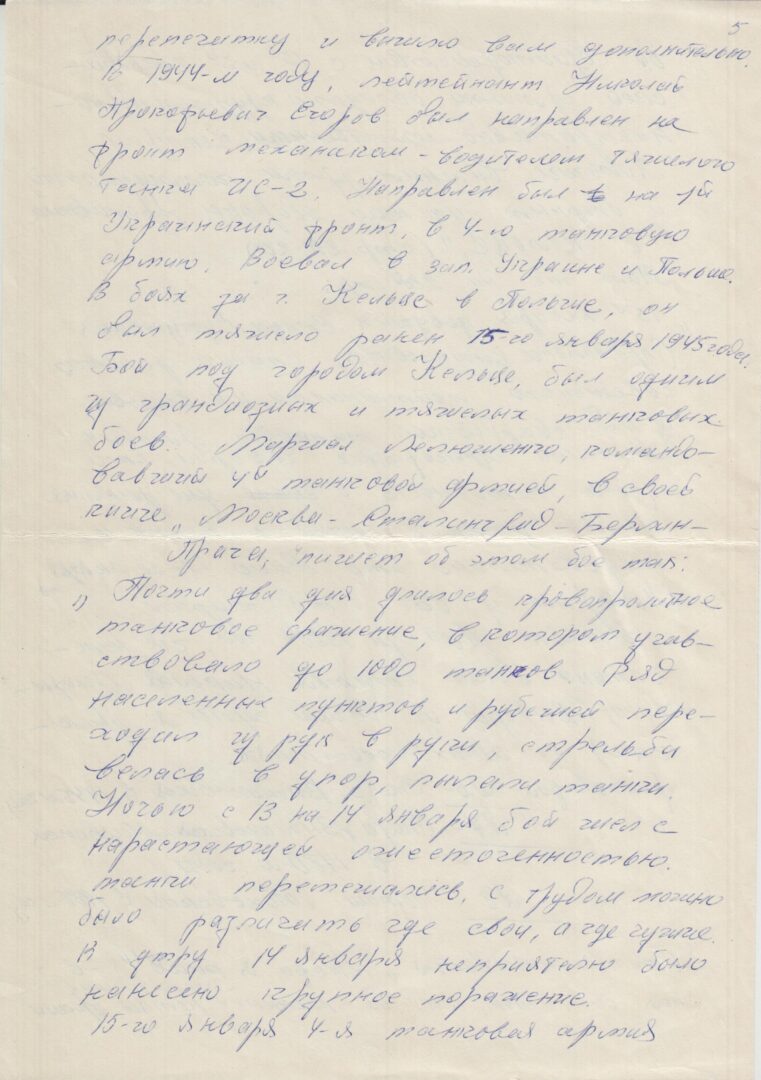 5
перепечатку и вышлю вам дополнительно.
В 1944-м году, лейтейнант Николай
Прокофьевич Егоров был направлен на
фронт механиком-водителем тяжелого
танка ИС-2. Направлен был на 1й
Украинский фронт, в 4-ю танковую
армию. Воевал в зап. Украине и Польше.
В боях за г. Кельце в Польше, он
был тяжело ранен 15-го января 1945 года.
Бой под городом Кельце, был одним
из грандиозных и тяжелых танковых
боев. Маршал Лелюшенко, командо-
вавший 4й танковой армией, в своей
книге „Москва-Сталинград-Берлин-
Прага", пишет об этом бое так:
„Почти два дня длилось кровопролитное
танковое сражение, в котором учав-
ствовало до 1000 танков. Ряд
населенных пунктов и рубежей пере-
ходил из рук в руки, стрельба
велась в упор, пылали танки.
Ночью с 13 на 14 января бой шел с
нарастающей ожесточенностью.
танки перемешались, с трудом можно
было различить где свои, а где чужие.
К утру 14 января неприятелю было
нанесено крупное поражение.
15-го января 4-я танковая армия